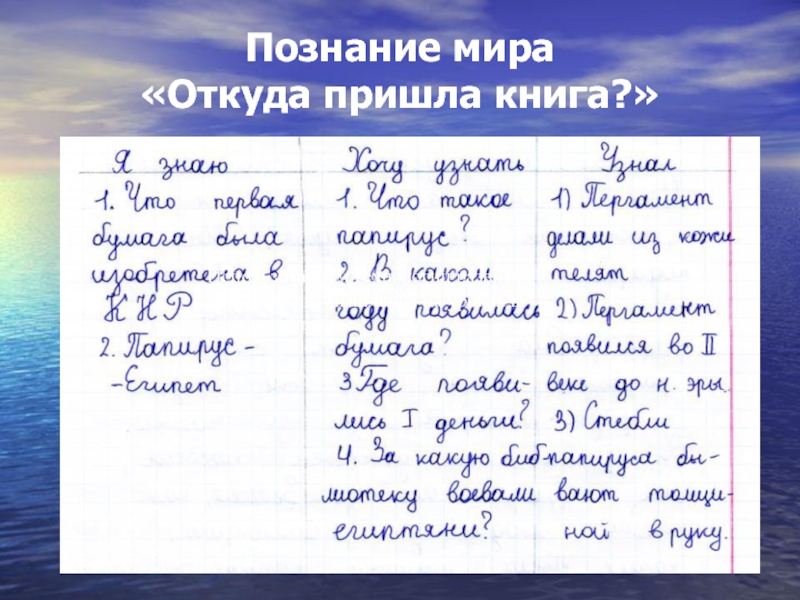 Познание мира
«Откуда пришла книга?»
Я знаю
1. Что первая
бумага была
изобретена в
КНР
2. Папирус -
-Египет
Хочу узнать
1. Что такое
папирус?
2. В каком
году появилась
бумага?
3 Где появи-
лись I деньги?
4. За какую биб-
лиотеку воевали
египтяни?
Узнал
1) Пергамент
делали из кожи
телят
2) Пергамент
появился во II
веке до н. эры.
3) Стебли
папируса бы-
вают толщи-
ной в руку.